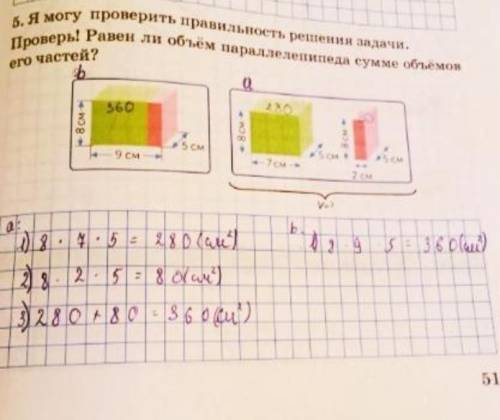 5. Я могу проверить правильность решения задачи.
Проверь! Равен ли объём параллелепипеда сумме объёмов
его частей?
b
a
360
8 см
5 см
9 см
280
8 см
5 см
7 см
8 см
5 см
2 см
V=?
a:
1) 8 · 7 · 5 = 280 (см²)
2) 8 · 2 · 5 = 80 (см²)
3) 280 + 80 = 360 (см²)
b.
1) 8 · 9 · 5 = 360 (см²)
51